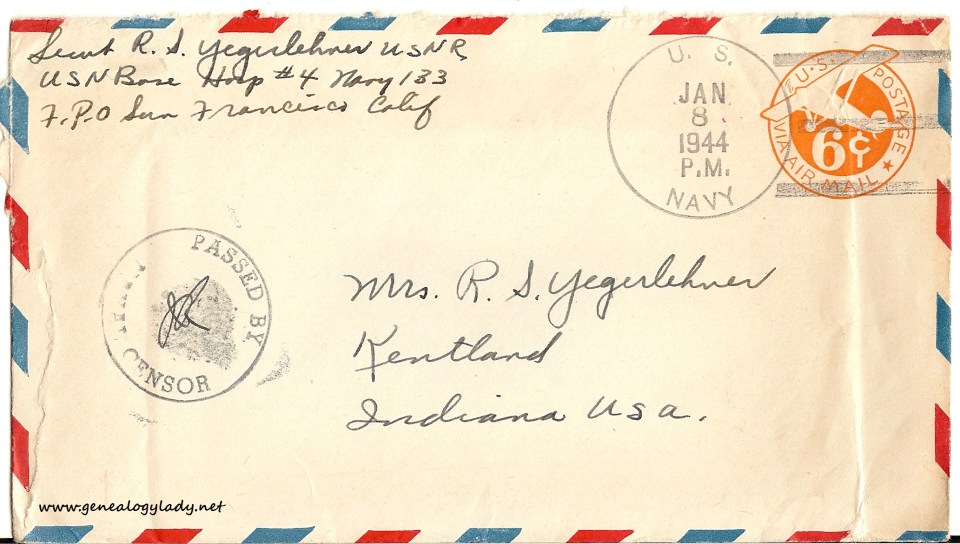 Lieut R. S. Yegerlehner USNR
USN Base Hosp #4 Navy 133
F.P.O San Francisco Calif
U. S.
JAN
8
1944
P.M.
NAVY
U.S. POSTAGE
6¢
VIA AIR MAIL
PASSED BY
CENSOR
Mrs. R. S. Yegerlehner
Kentland
Indiana USA.
www.genealogylady.net